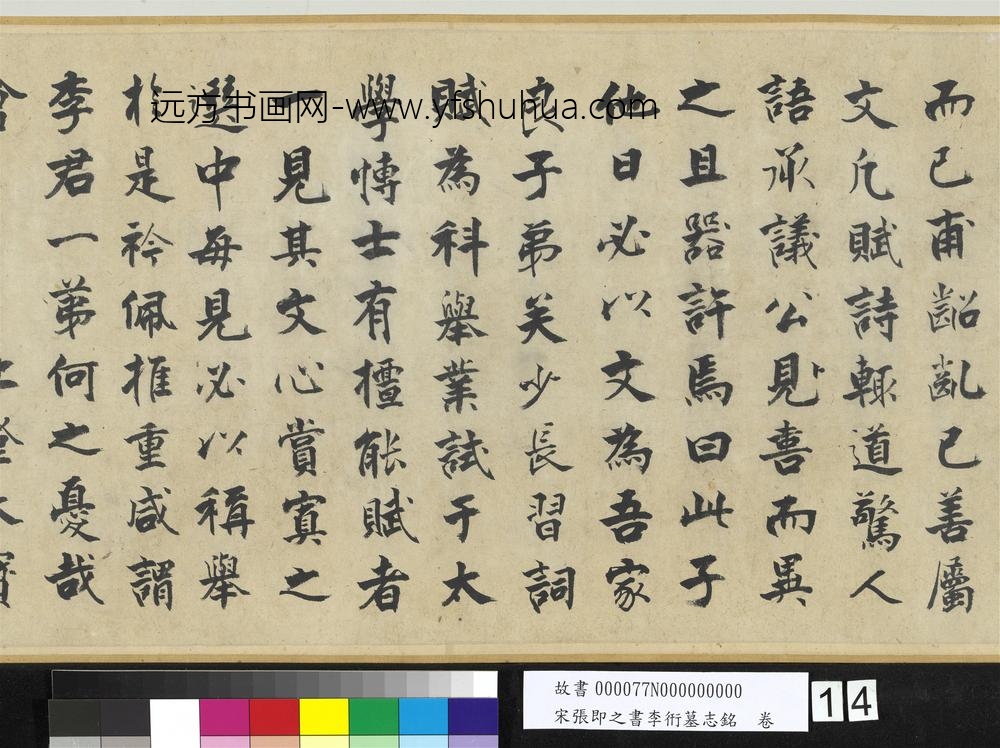 而已甫齠齓已善屬
文凡賦詩輒道驚人
語承議公見喜而異
之且器許焉曰此子
他日必以文為吾家
良子弟矣少長習詞
賦為科舉業試于太
學博士有擅能賦者
一見其文心賞寘之
選中每見必以稱舉
於是衿佩推重咸謂
李君一第何之憂哉
远方书画网-www.yfshuhua.com
故書 000077N000000000
宋張即之書李衎墓志銘 卷
14